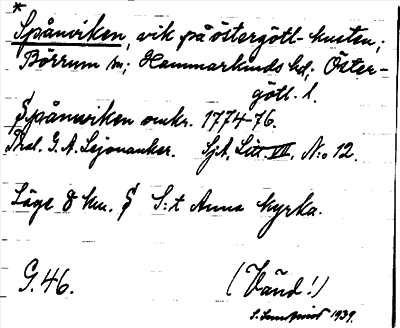 *
Spånviken, vik på östergötl. kusten;
Börrum sn; Hammarkinds hd; Öster-
götl. l.
Spånwiken omkr. 1774-76.
G. A. Lejonanker. Sjk, Litt. VII, N:o 12.
Läge 8 km. S S:t Anna kyrka.
G. 46.
(Vänd!)
1939.